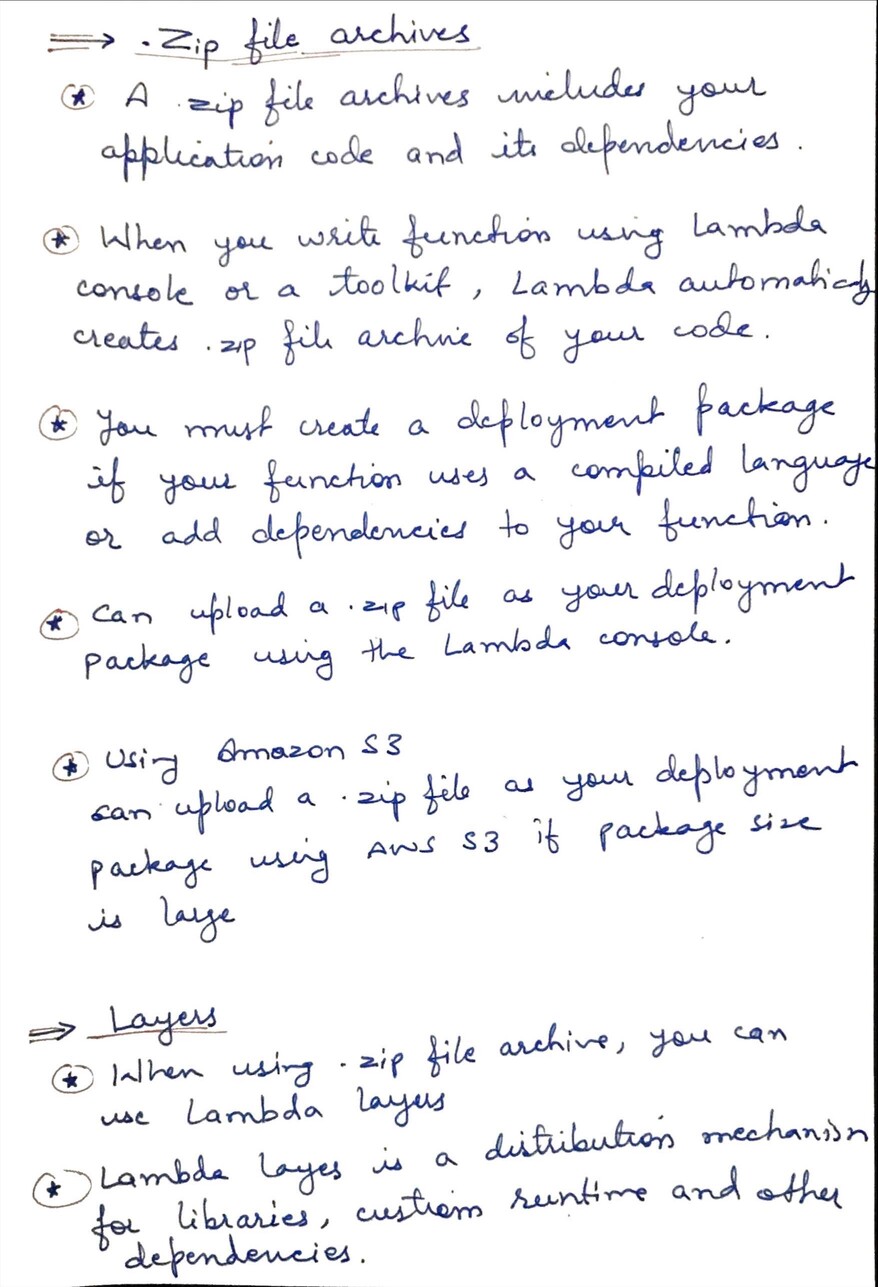 ⇒ .Zip file archives
⊛ A .zip file archives includes your
application code and its dependencies.
⊛ When you write function using Lambda
console or a toolkit, Lambda automatically
creates .zip file archive of your code.
⊛ You must create a deployment package
if your function uses a compiled language
or add dependencies to your function.
⊛ Can upload a .zip file as your deployment
package using the Lambda console.
⊛ Using Amazon S3
can upload a .zip file as your deployment
package using AWS S3 if package size
is large
⇒ Layers
⊛ When using .zip file archive, you can
use Lambda layers
⊛ Lambda layes is a distribution mechanism
for libraries, custiom runtime and other
dependencies.